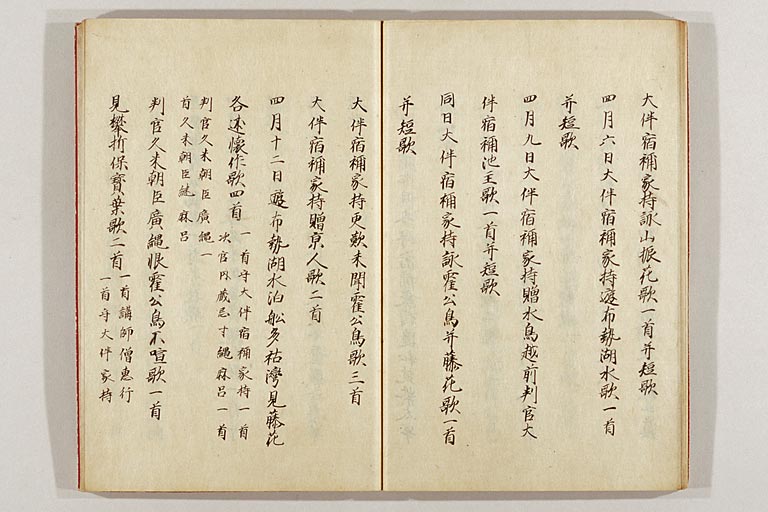 大伴宿祢家持詠山振花歌一首并短歌
四月六日大伴宿祢家持遊布勢湖水歌一首
并短歌
四月九日大伴宿祢家持贈水烏越前判官大
伴宿祢池主歌一首并短歌
同日大伴宿祢家持詠霍公鳥并藤花歌一首
并短歌
大伴宿祢家持更歎未聞霍公鳥歌三首
大伴宿祢家持贈京人歌二首
四月十二日遊布勢湖水泊舩多祜灣見藤花
各述懐作歌四首
一首守大伴宿祢家持一首
次官内蔵忌寸縄麻呂一首
判官久米朝臣廣縄一
首久米朝臣継麻呂
判官久米朝臣廣縄恨霍公鳥不喧歌一首
見攀折保寶葉歌二首
一首講師僧恵行
一首守大伴家持